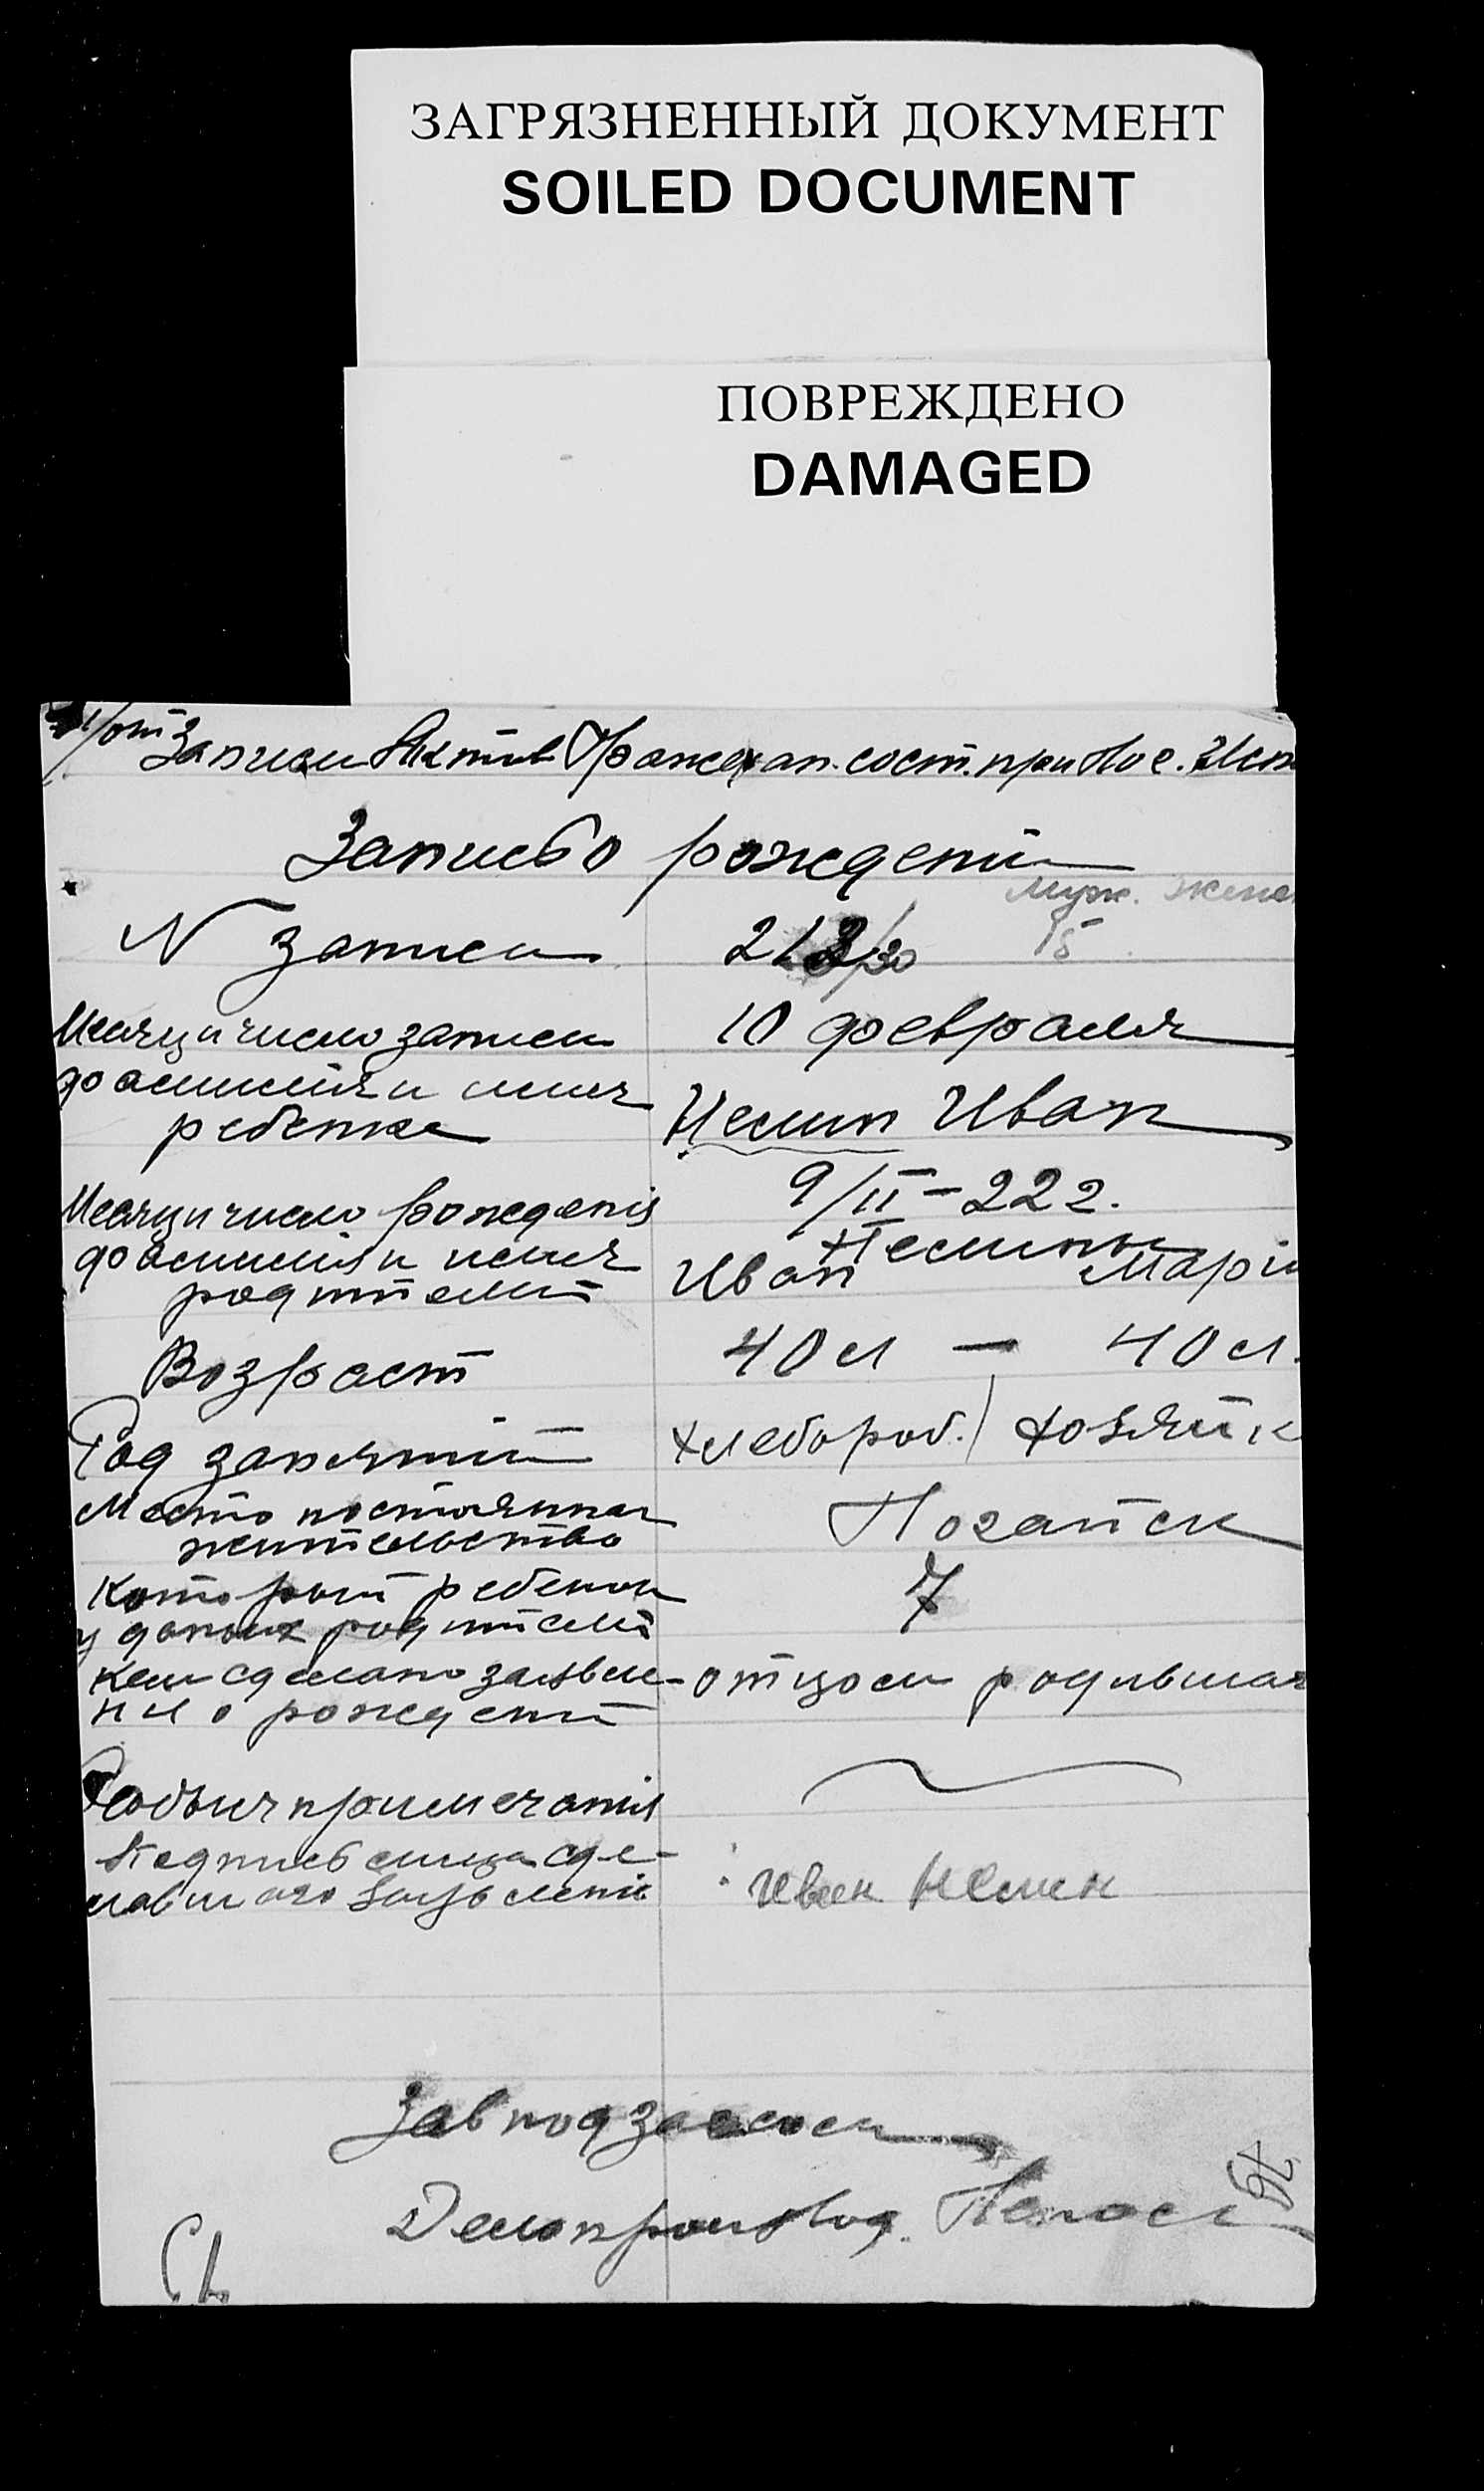 ЗАГРЯЗНЕННЫЙ ДОКУМЕНТ
SOILED DOCUMENT
ПОВРЕЖДЕНО
DAMAGED
п/от Записи Актов Граждан. сост. при Ног.
Запись о рождении
муж. женс
N записи 213/20 15
Месяц и число записи 10 февраля
фамилия и имя
ребенка Немин Иван
Месяц и число рожденія 9/II-22г.
фамилия и имя Немины
родителей Иван Марія
Возраст 40 л — 40 л.
Род занятий хлебороб. / хозяйк
Место постоянная Ногайск
жительство
Который ребенок 7
у даных родителей
Кем сделано заявле- отцом родившая
ние о рождении
Особыя примечания
Подпись лица сде-
лавшаго заявленіе Иван Немин
Завподзагсом
Делопроизвод.